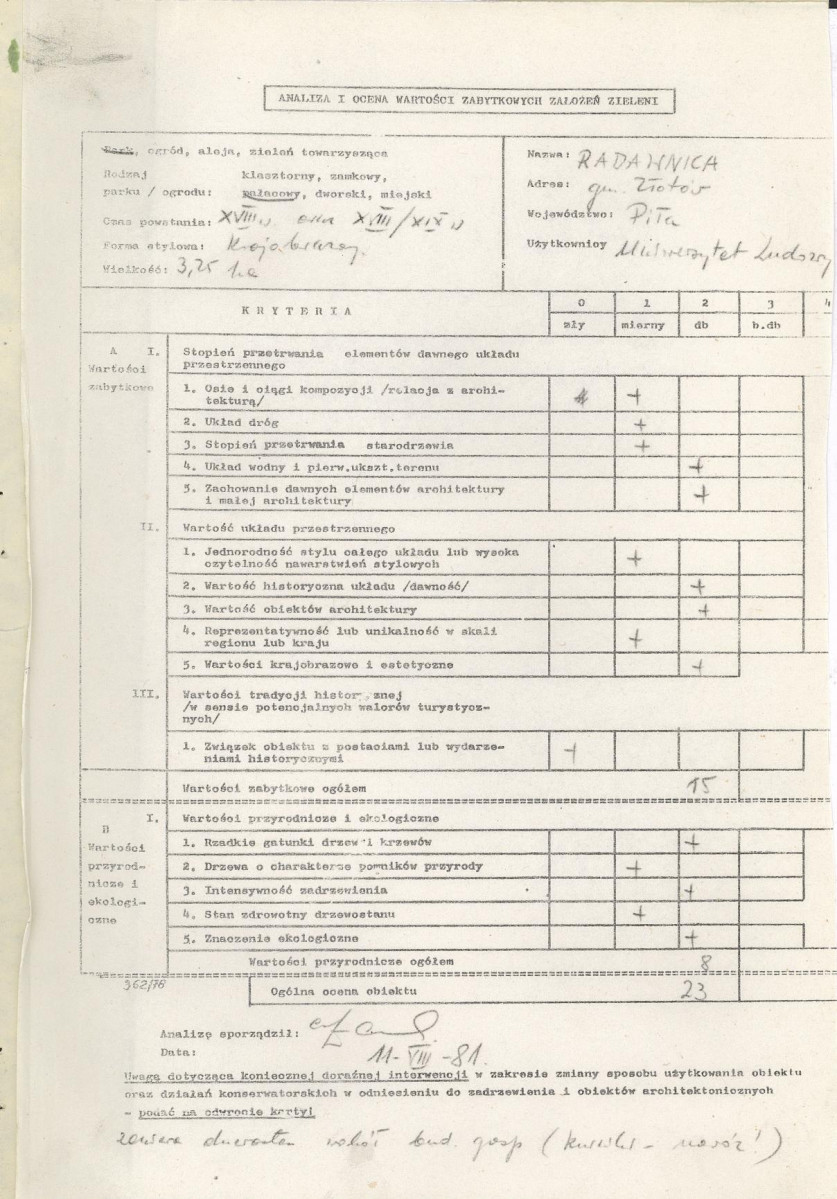 ANALIZA I OCENA WARTOŚCI ZABYTKOWYCH ZAŁOŻEŃ ZIELENI
Park, ogród, aleja, zieleń towarzysząca
Rodzaj klasztorny, zamkowy,
parku / ogrodu: pałacowy, dworski, miejski
Czas powstania: XVIII w. oraz XVIII/XIX w
Forma stylowa: Krajobrazowy.
Wielkość: 3,25 ha
Nazwa: RADAWNICA
Adres: gm. Złotów
Województwo: Piła
Użytkownicy Uniwersytet Ludowy
KRYTERIA
0 1 2 3 4
zły mierny db b.db
A I. Stopień przetrwania elementów dawnego układu
Wartości przestrzennego
zabytkowe 1. Osie i ciągi kompozycji /relacja z archi- +
tekturą/
2. Układ dróg +
3. Stopień przetrwania starodrzewia +
4. Układ wodny i pierw.ukszt.terenu +
5. Zachowanie dawnych elementów architektury +
i małej architektury
II. Wartość układu przestrzennego
1. Jednorodność stylu całego układu lub wysoka +
czytelność nawarstwień stylowych
2. Wartość historyczna układu /dawność/ +
3. Wartość obiektów architektury +
4. Reprezentatywność lub unikalność w skali +
regionu lub kraju
5. Wartości krajobrazowe i estetyczne +
III. Wartości tradycji historycznej
/w sensie potencjalnych walorów turystycz-
nych/
1. Związek obiektu z postaciami lub wydarze- +
niami historycznymi
Wartości zabytkowe ogółem 15
B I. Wartości przyrodnicze i ekologiczne
Wartości 1. Rzadkie gatunki drzew i krzewów +
przyrod- 2. Drzewa o charakterze pomników przyrody +
nicze i 3. Intensywność zadrzewienia +
ekologi- 4. Stan zdrowotny drzewostanu +
czne 5. Znaczenie ekologiczne +
Wartości przyrodnicze ogółem 8
362/78 Ogólna ocena obiektu 23
Analizę sporządził:
Data: 11-VIII-81.
Uwaga dotycząca koniecznej doraźnej interwencji w zakresie zmiany sposobu użytkowania obiektu
oraz działań konserwatorskich w odniesieniu do zadrzewienia i obiektów architektonicznych
- podać na odwrocie karty!
wokół bud. gosp